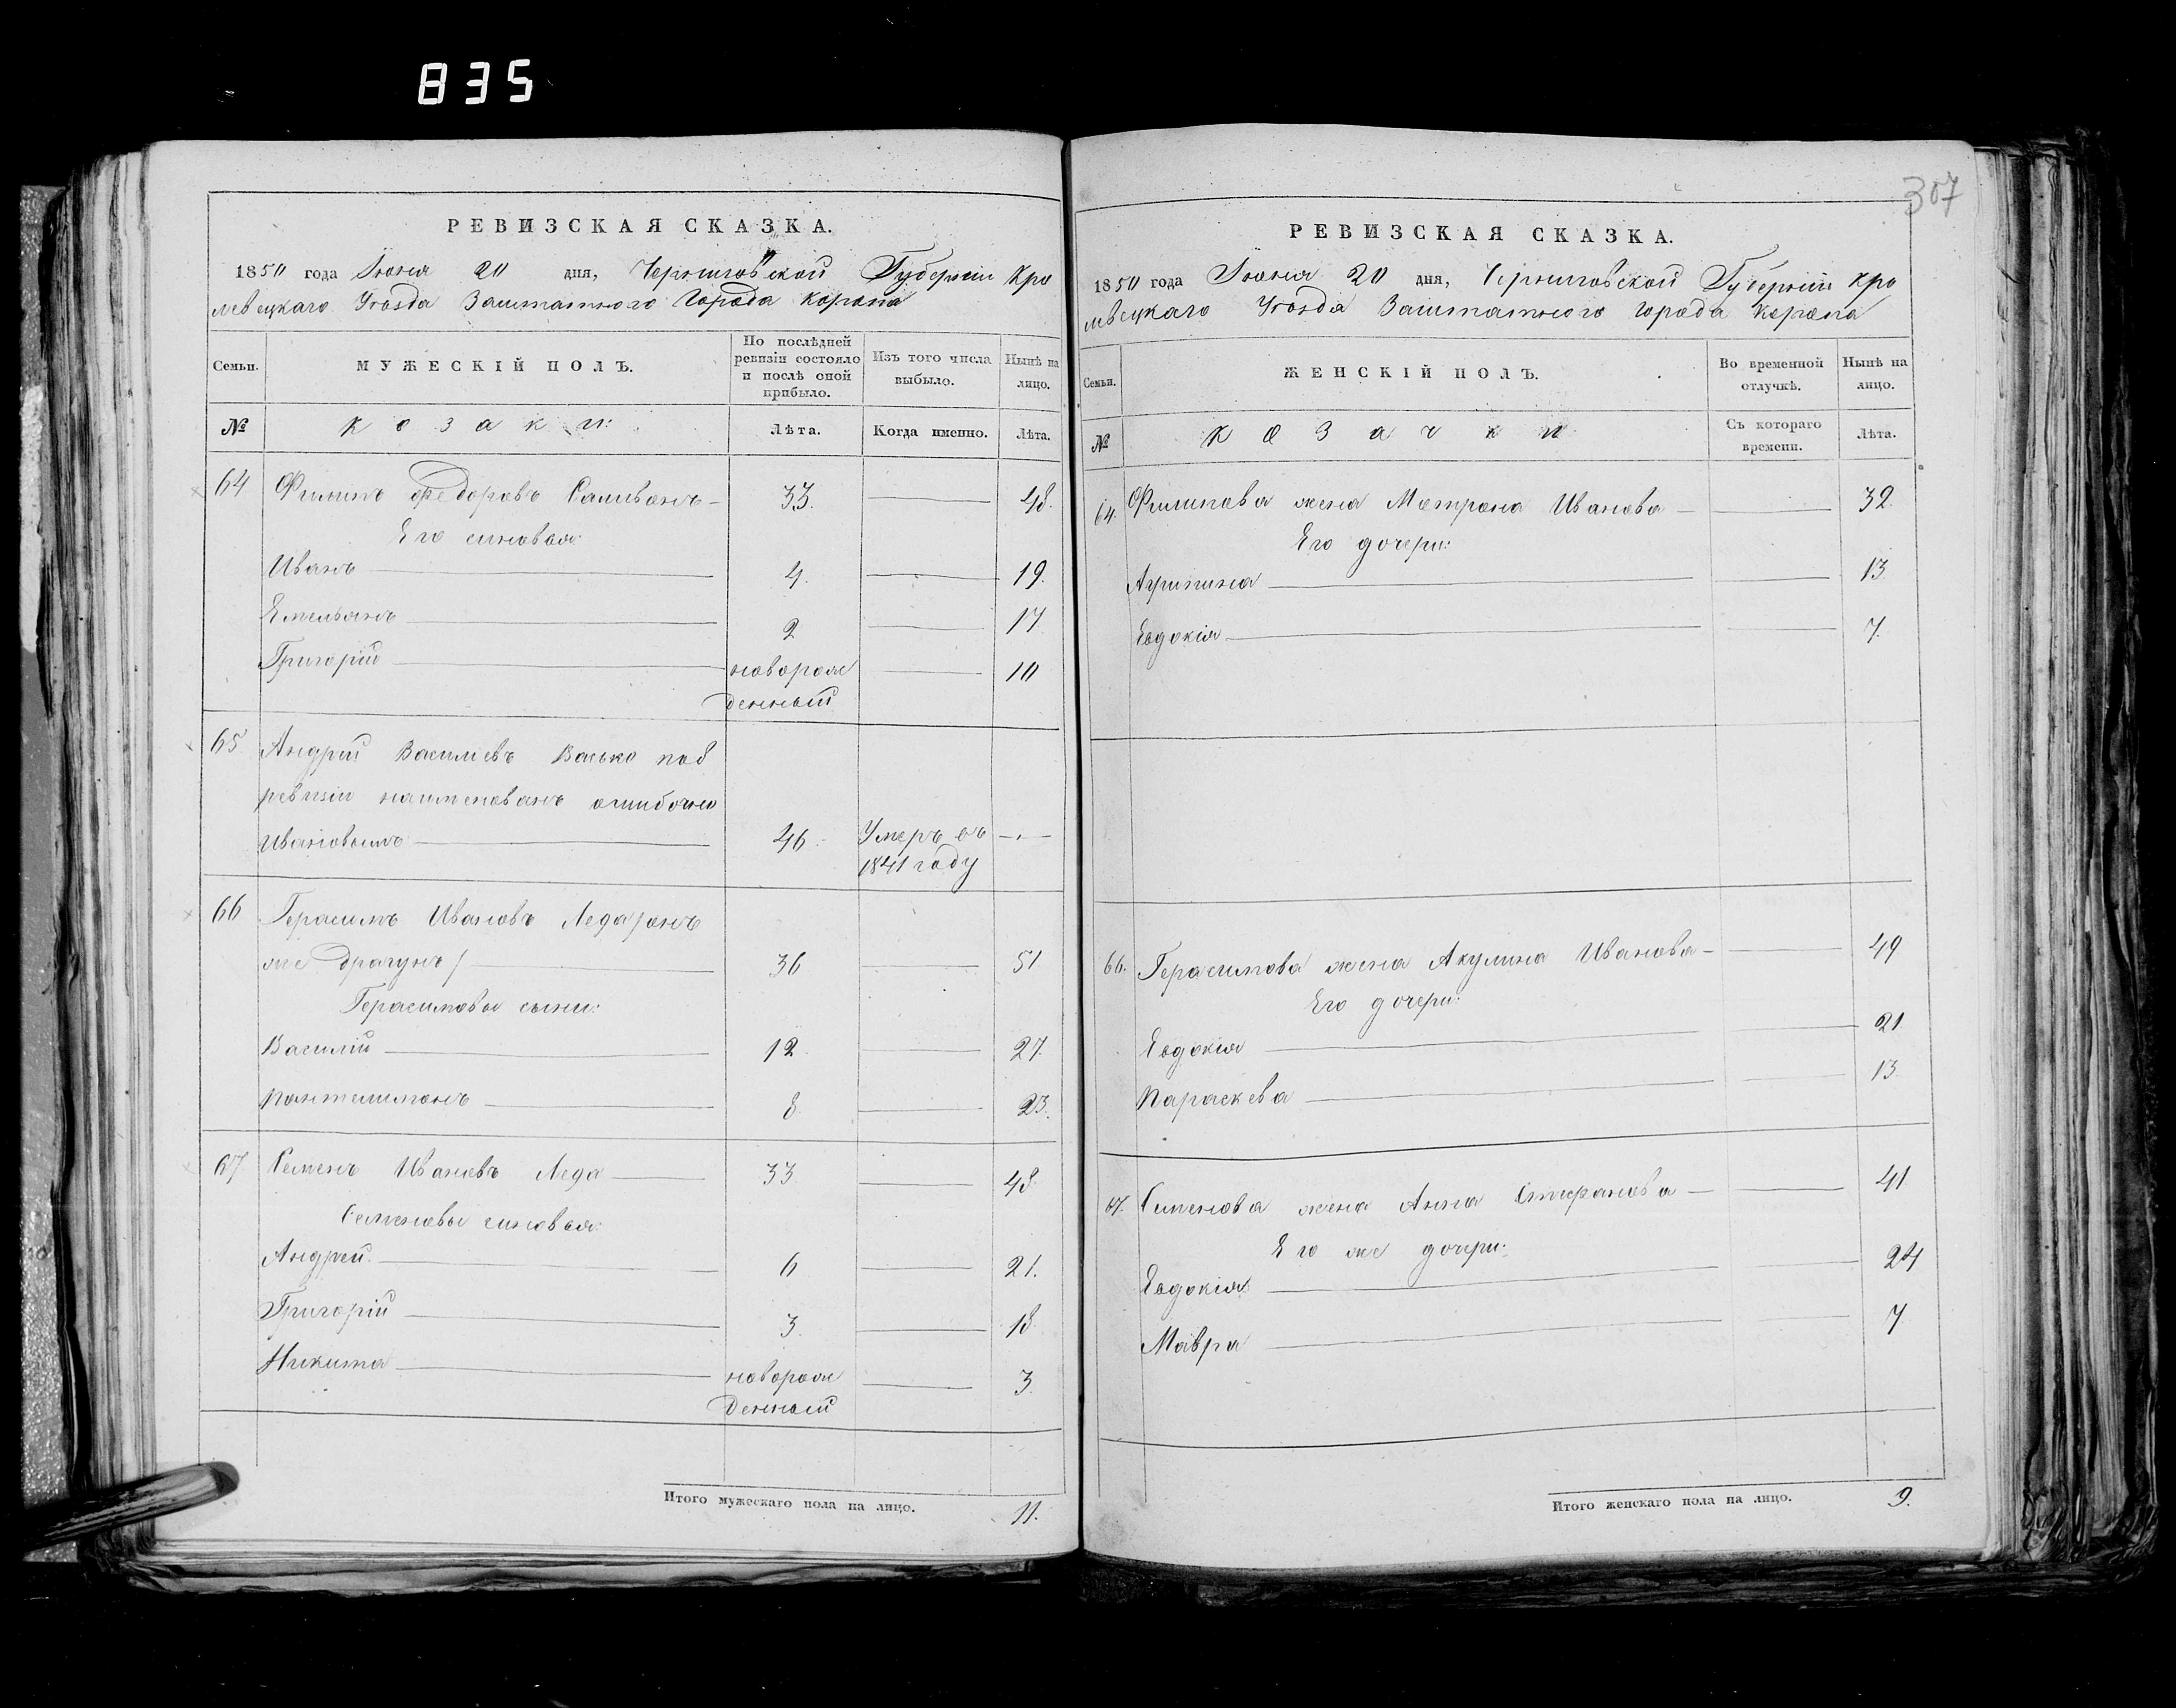 835
РЕВИЗСКАЯ СКАЗКА.
1850 года Іюня 20 дня, Черниговской Губерніи Кро
левецкаго Уѣзда Заштатного Города Коропа
Семьи.
МУЖЕСКІЙ ПОЛЪ.
По послѣдней ревизіи состояло и послѣ оной прибыло.
Изъ того числа выбыло.
Нынѣ на лицо.
№
Козаки:
Лѣта.
Когда именно.
Лѣта.
64 Филипъ Федоровъ Самивонъ — 33. — 48.
Его синовья:
Иванъ — 4. — 19.
Емельянъ — 2 — 17
Григорій — новорож — 10
денный
65. Андрій Василіевъ Васько по 8
ревизіи наименованъ ошибочно
Ивановымъ — 46. Умеръ въ —.—
1841 году
66 Герасимъ Ивановъ Леда /онъ
же Драгунъ/ — 36 — 51
Герасимовы сыни:
Василій — 12. — 27.
Пантелимонъ — 8. — 23.
67 Семенъ Ивановъ Леда — 33 — 48.
Семеновы синовья:
Андрей. — 6 — 21.
Григорій — 3. — 18
Никита — новорож — 3.
денный
Итого мужескаго пола на лицо. 11.
307
РЕВИЗСКАЯ СКАЗКА.
1850 года Іюня 20 дня, Черниговской Губерніи Кро
лѣвецкаго Уѣзда Заштатного города Коропа
Семьи.
ЖЕНСКІЙ ПОЛЪ.
Во временной отлучкѣ.
Нынѣ на лицо.
№
Козачки
Съ котораго времени.
Лѣта.
64. Филипова жена Мотрона Иванова — 32.
Его дочери:
Агрипина — 13
Евдокія — 7.
66. Герасимова жена Акулина Иванова — 49
Его дочери:
Евдокія — 21
Параскева — 13
67. Семенова жена Анна Стефанова — 41
Его же дочери:
Евдокія — 24
Мавра — 7
Итого женскаго пола на лицо. 9.